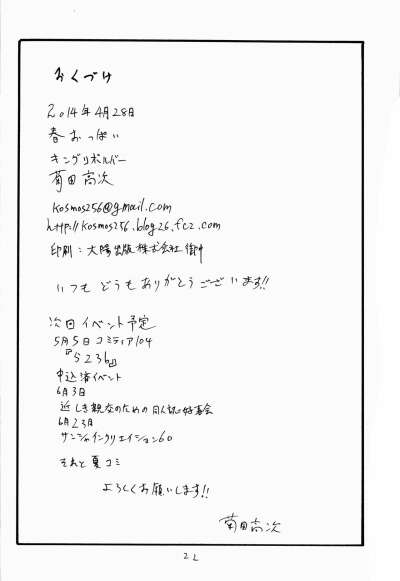 おくづけ
2014年4月28日
春おっぱい
キングリボルバー
菊田高次
kosmos256@gmail.com
http://kosmos256.blog26.fc2.com
印刷:大陽出版株式会社御中
いつもどうもありがとうございます!!
次回イベント予定
5月5日コミティア104
『S23b』
申込済イベント
6月3日
近しき親交のための同人誌好事会
6月23日
サンシャインクリエイション60
それと夏コミ
よろしくお願いします!!
菊田高次